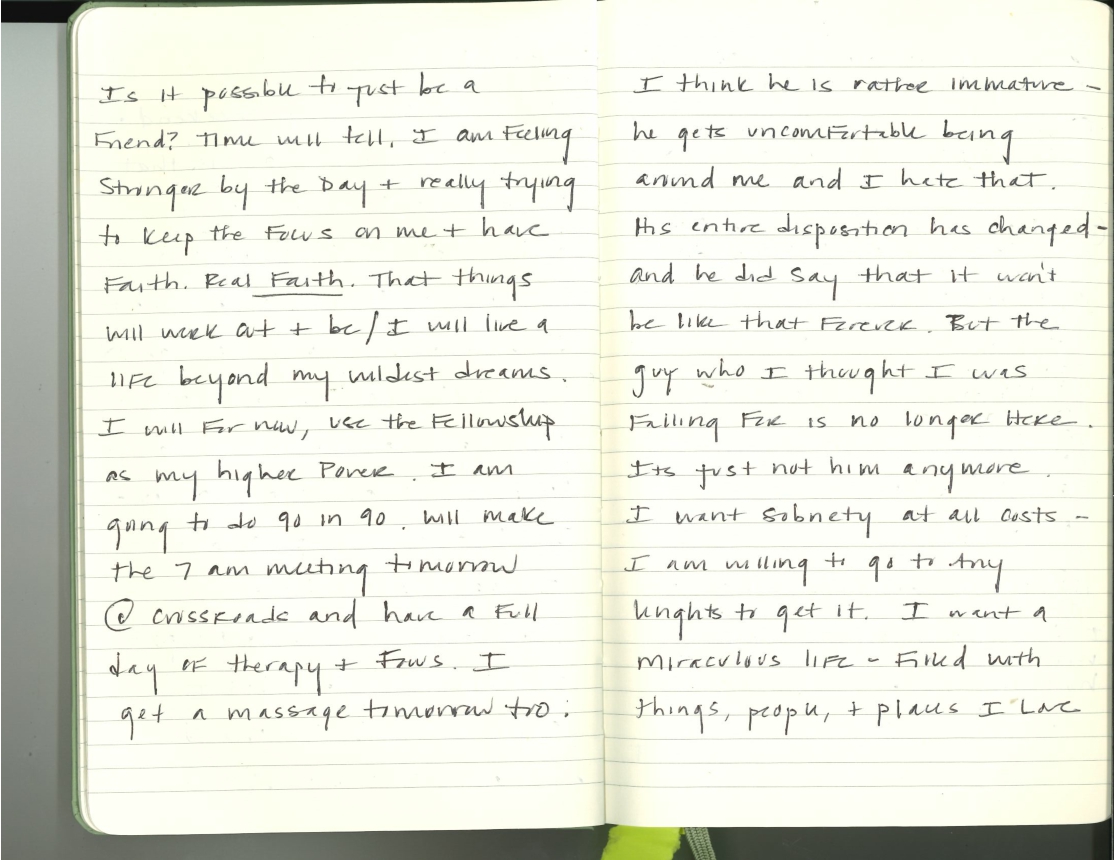 Is it possible to just be a
Friend? Time will tell. I am Feeling
Stronger by the Day + really trying
to keep the Focus on me + have
Faith. Real Faith. That things
will work out + be / I will live a
life beyond my wildest dreams.
I will For now, use the Fellowship
as my higher Power. I am
going to do 90 in 90. Will make
the 7 am meeting tomorrow
@ Crossroads and have a Full
day of therapy + Focus. I
get a massage tomorrow too:
I think he is rather immature -
he gets uncomfortable being
around me and I hate that.
His entire disposition has changed -
and he did say that it won't
be like that Forever. But the
guy who I thought I was
Falling For is no longer Here.
Its just not him anymore.
I want sobriety at all costs -
I am willing to go to Any
lenghts to get it. I want a
miraculous life - Filled with
things, people, + places I Love